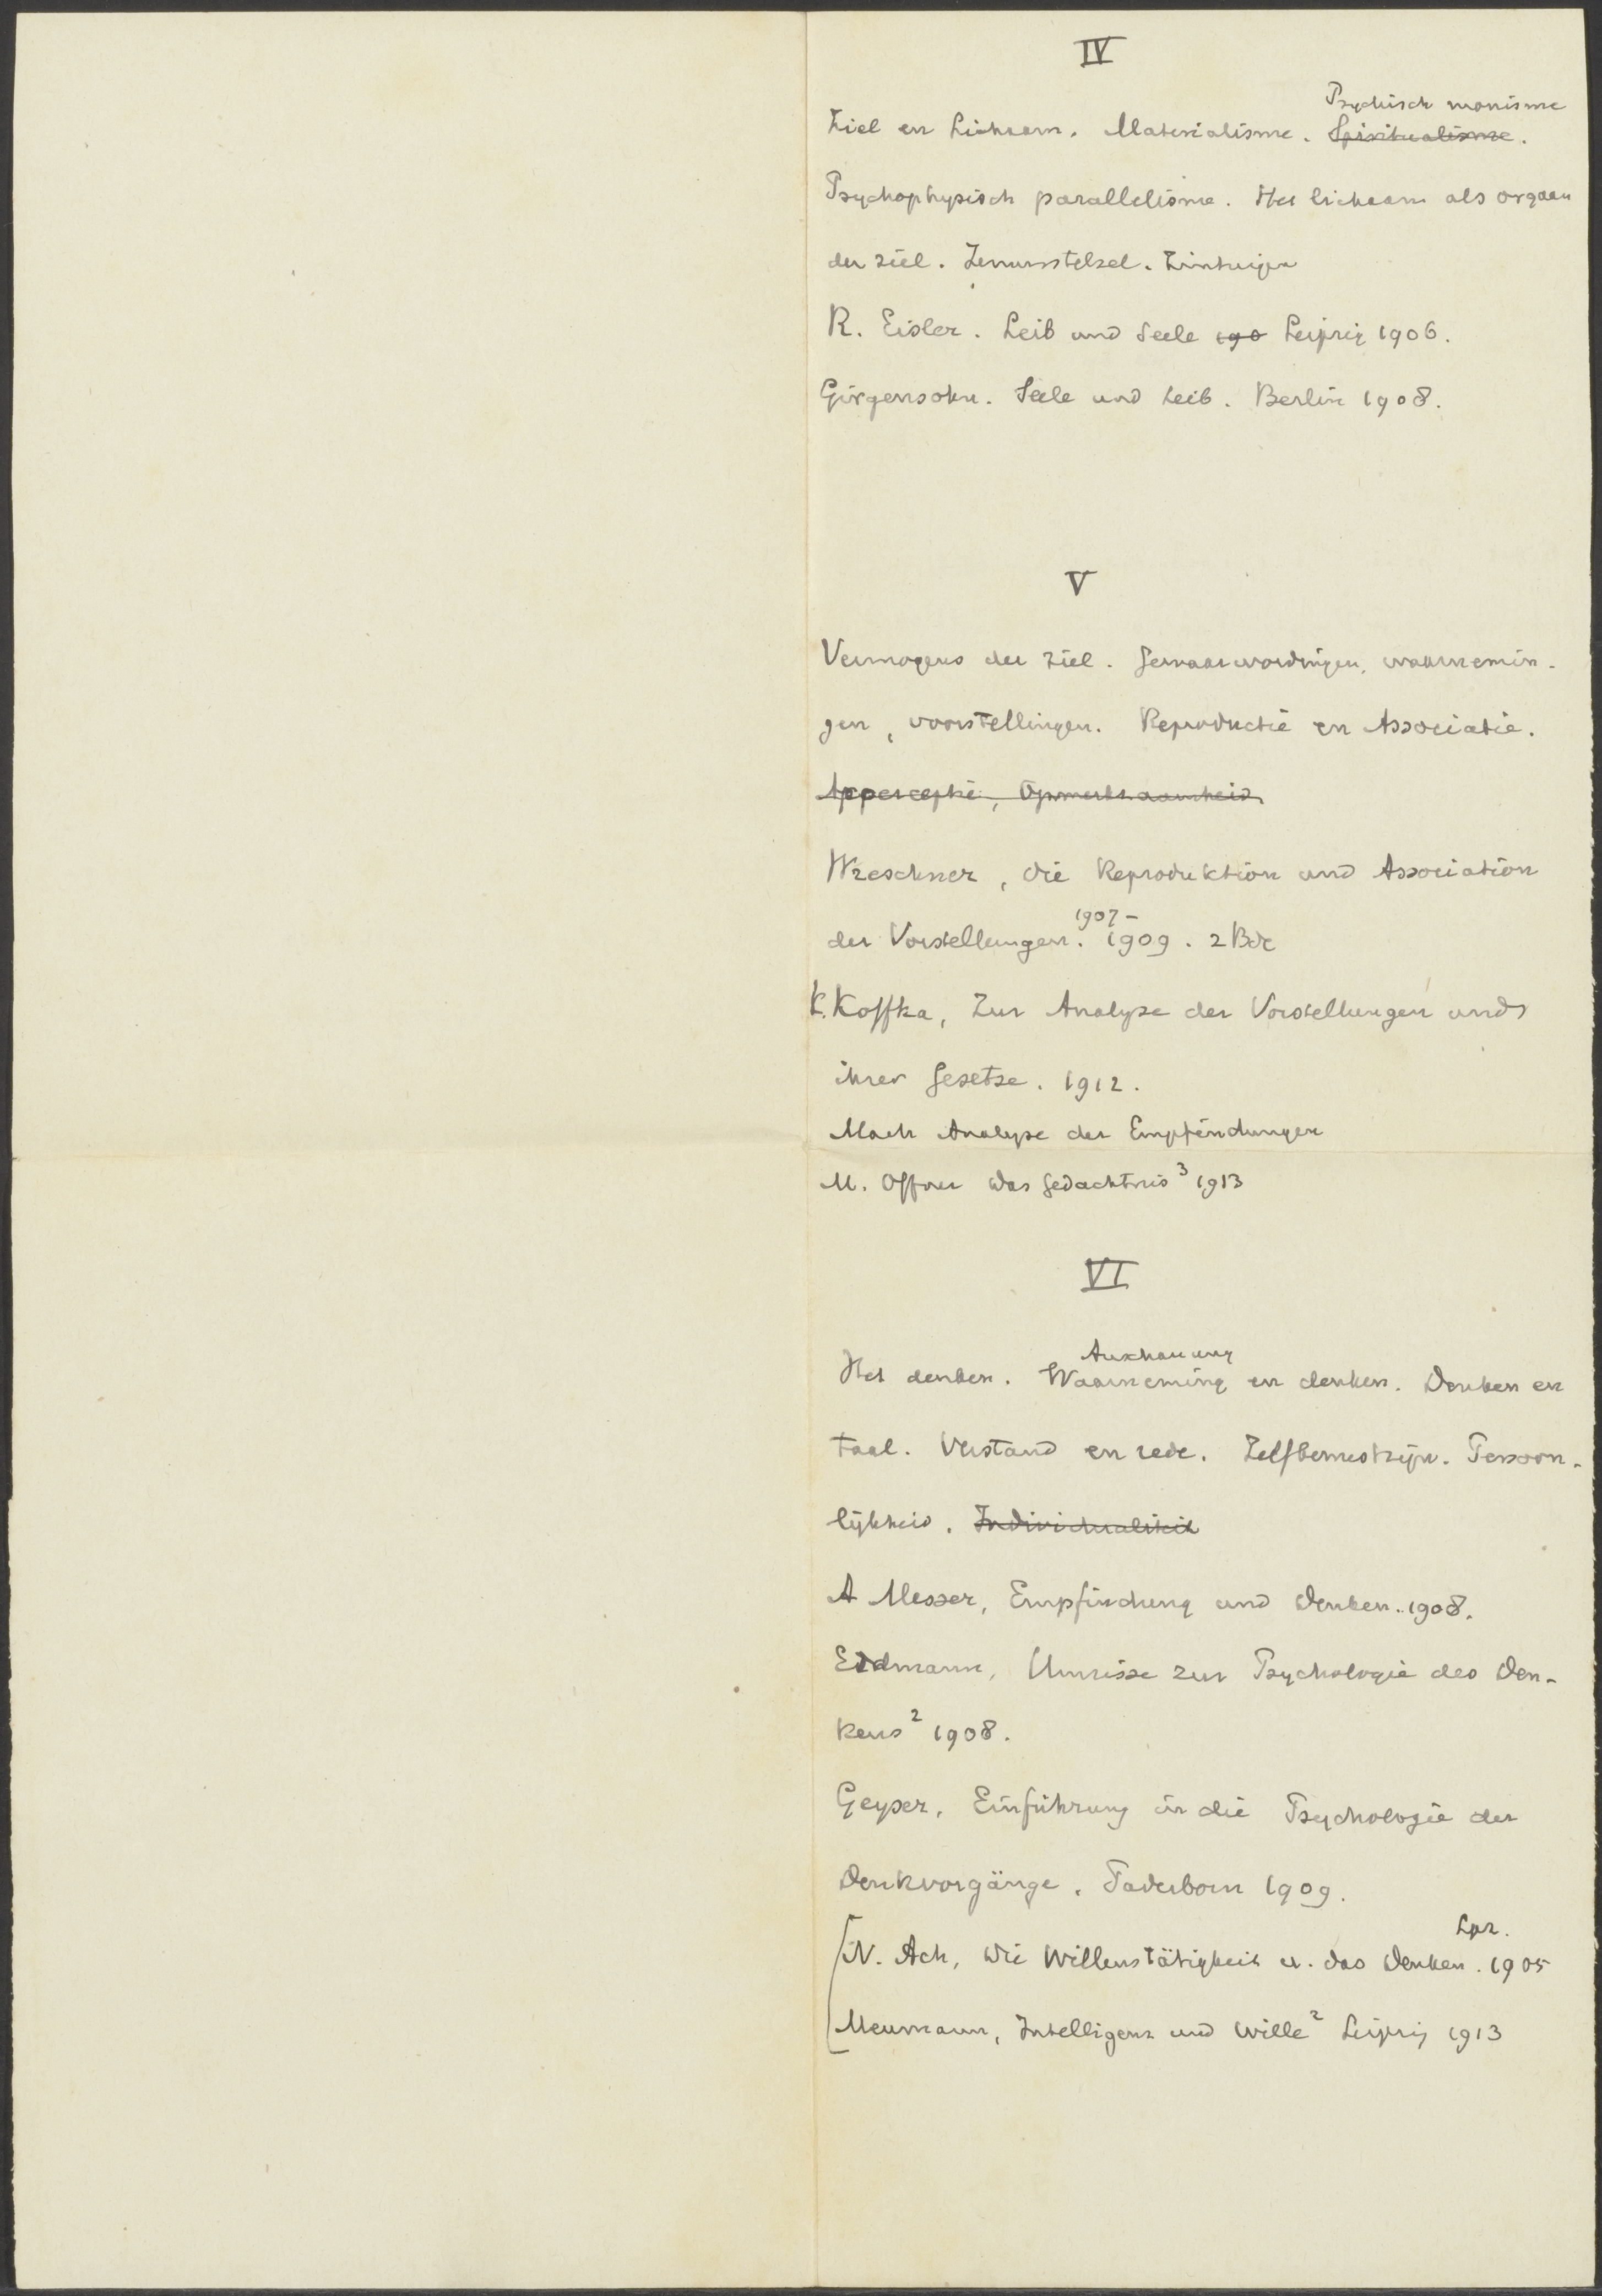 IV
Psychisch monisme
Ziel en Lichaam. Materialisme. Spiritualisme.
Psychophysisch parallelisme. Het lichaam als orgaan
der ziel. Zenuwstelsel. Zintuigen
R. Eisler. Leib und Seele 190 Leipzig 1906.
Girgensohn. Seele und Leib. Berlin 1908.
V
Vermogens der ziel. Gewaarwordingen, waarnemin-
gen, voorstellingen. Reproductie en Associatie.
Apperceptie, Opmerkzaamheid
Wreschner, die Reproduktion und Association
1907-
der Vorstellungen. 1909. 2 Bde
K. Koffka, Zur Analyse der Vorstellungen und
ihrer Gesetze. 1912.
Mach Analyse der Empfindungen
M. Offner Das Gedachtnis³ 1913
VI
Anschauung
Het denken. Waarneming en denken. Denken en
taal. Verstand en rede. Zelfbewustzijn. Persoon-
lijkheid. Individualiteit
A Messer, Empfindung und Denken. 1908.
Erdmann, Umrisse zur Psychologie des Den-
kens² 1908.
Geyser, Einführung in die Psychologie der
Denkvorgänge. Paderborn 1909.
Lpz.
N. Ach, Die Willenstätigkeit u. das Denken. 1905
Meumann, Intelligenz und Wille² Leipzig 1913